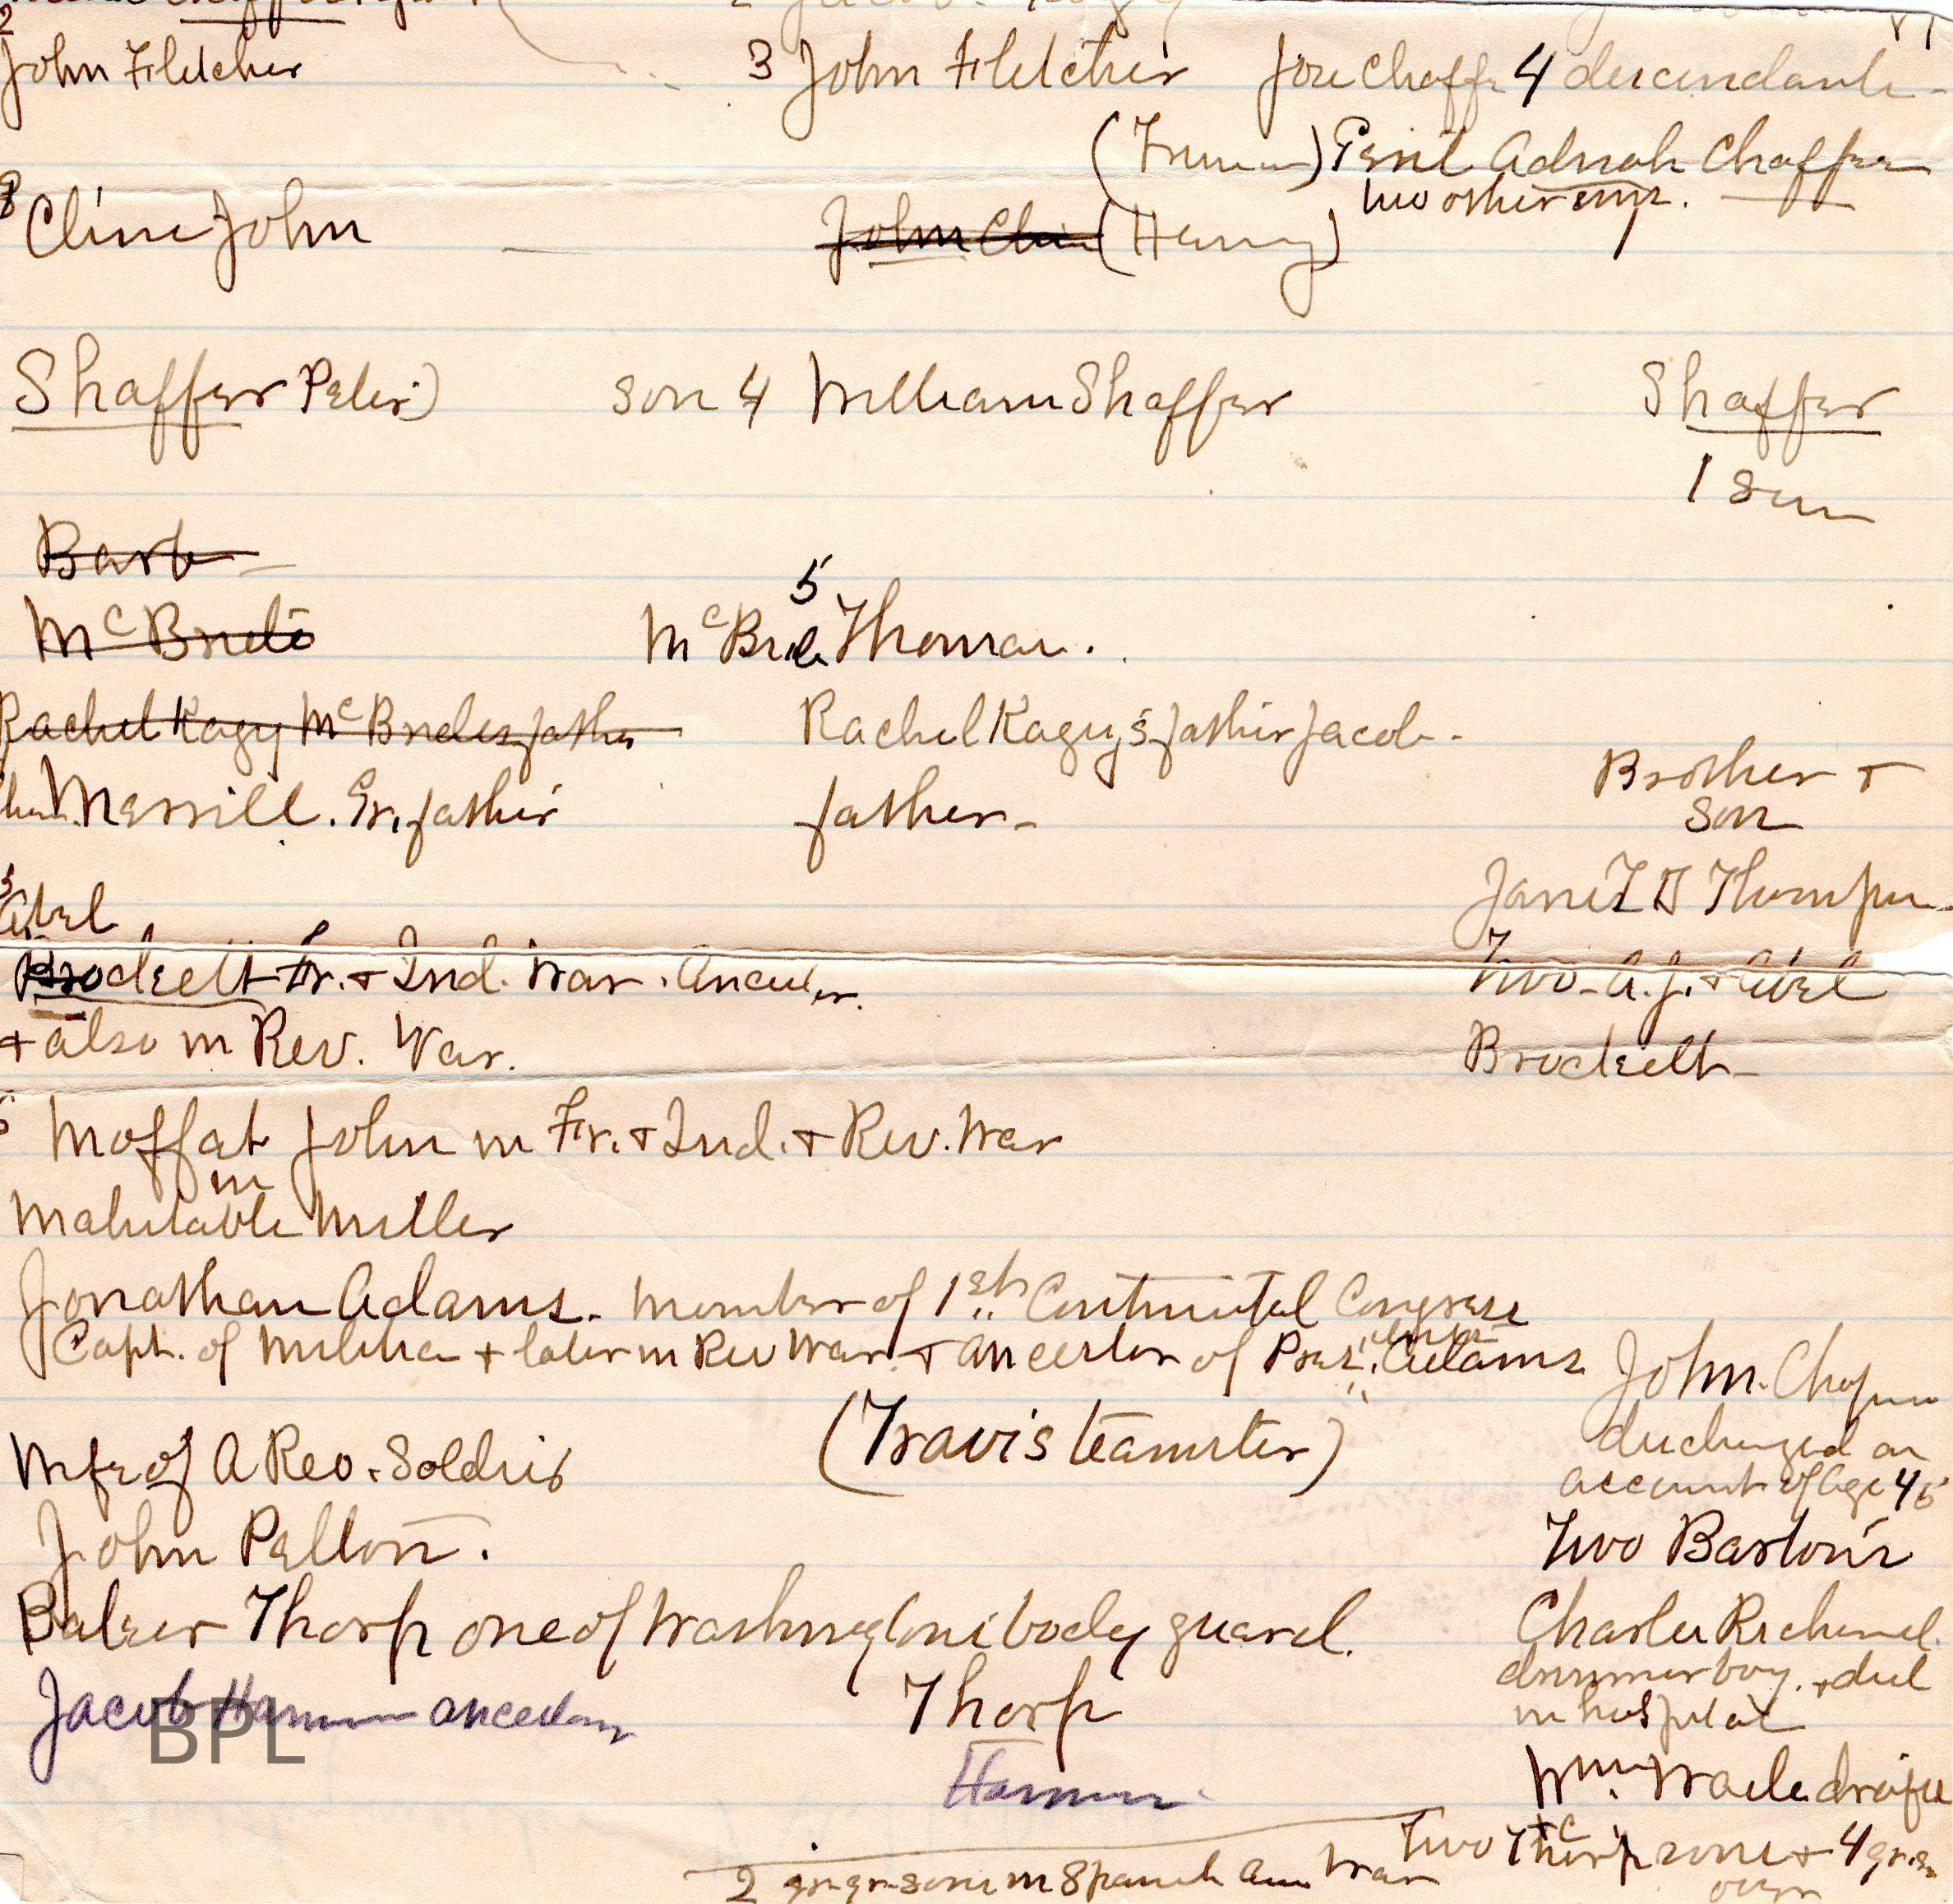 2 Jacob
John Fletcher 3 John Fletcher Joe Chaffe 4 descendants
(Truman) Genl Adnah Chaffee
two other sons.
8 Cline John John Cline (Henry)
Shaffer Peter) son 4 William Shaffer Shaffer
1 son
Barb
5
McBride McBride Thomas.
Rachel Kagy McBrides father Rachel Kagy's father Jacob
Brother +
Merrill. Gr. father father
son
Abel Jane Z T Thompson
Brockett Fr. + Ind. War. Ancester. Two A. J. + Abel
+ also in Rev. War. Brockett
Moffat John in Fr. + Ind. + Rev. War
in
Mahitable Miller
Jonathan Adams. member of 1st Continental Congress
Capt. of Militia + later in Rev War. + ancestor of Pres. Adams John Chapin
(Travis teamster) discharged on
Wife of A Rev. Soldier account of age 45
John Pelton. Two Barton's
Balzer Thorp one of Washingtons body guard. Charles Richmond
drummer boy. + died
Jacob Hammon ancestor Thorp
in hospital
BPL
Hammon Wm. Wade drafted
Two Thorp sons + 4 gr. sons
2 gr. gr. sons in Spanish Am War over